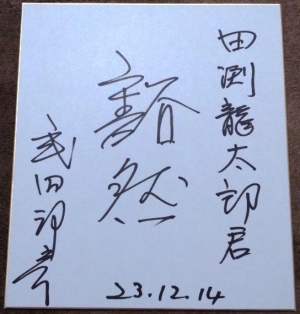 田渕龍太郎君
豁然
武田邦彦
23.12.14